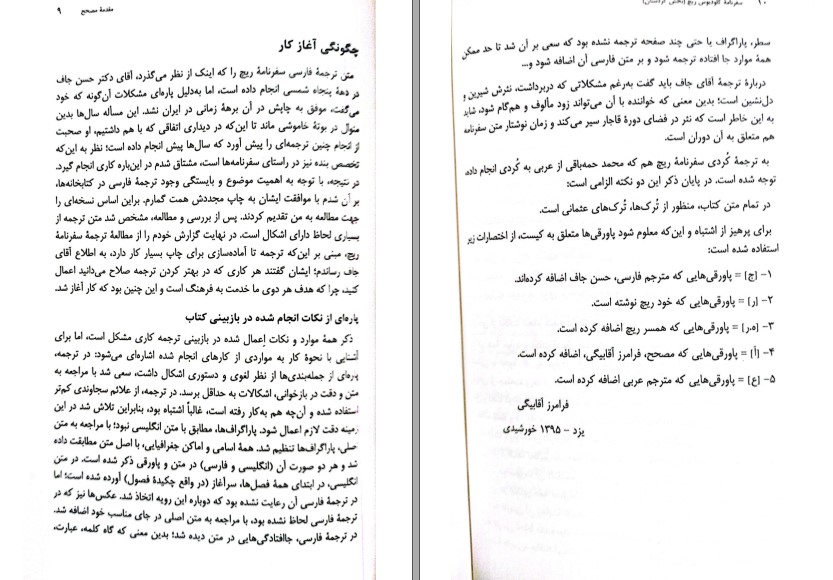 مقدمهٔ مصحح ۹
چگونگی آغاز کار
متن ترجمهٔ فارسی سفرنامهٔ ریچ را که اینک از نظر می‌گذرد، آقای دکتر حسن جاف
در دههٔ پنجاه شمسی انجام داده است، اما به‌دلیل پاره‌ای مشکلات آن‌گونه که خود
می‌گفت، موفق به چاپش در آن برههٔ زمانی در ایران نشد. این مسأله سال‌ها بدین
منوال در بوتهٔ خاموشی ماند تا این‌که در دیداری اتفاقی که با هم داشتیم، او صحبت
از انجام چنین ترجمه‌ای را پیش آورد که سال‌ها پیش انجام داده است؛ نظر به این‌که
تخصص بنده نیز در راستای سفرنامه‌ها است، مشتاق شدم در این‌باره کاری انجام گیرد.
در نتیجه، با توجه به اهمیت موضوع و بایستگی وجود ترجمهٔ فارسی در کتابخانه‌ها،
بر آن شدم با موافقت ایشان به چاپ مجددش همت گمارم. براین اساس نسخه‌ای را
جهت مطالعه به من تقدیم کردند. پس از بررسی و مطالعه، مشخص شد متن ترجمه از
بسیاری لحاظ دارای اشکال است. در نهایت گزارش خودم را از مطالعهٔ ترجمهٔ سفرنامهٔ
ریچ، مبنی بر این‌که ترجمه تا آماده‌سازی برای چاپ بسیار کار دارد، به اطلاع آقای
جاف رساندم؛ ایشان گفتند هر کاری که در بهتر کردن ترجمه صلاح می‌دانید اعمال
کنید، چرا که هدف هر دوی ما خدمت به فرهنگ است و این چنین بود که کار آغاز شد.
پاره‌ای از نکات انجام شده در بازبینی کتاب
ذکر همهٔ موارد و نکات اِعمال شده در بازبینی ترجمه کاری مشکل است، اما برای
آشنایی با نحوهٔ کار به مواردی از کارهای انجام شده اشاره‌ای می‌شود: در ترجمه،
پاره‌ای از جمله‌بندی‌ها از نظر لغوی و دستوری اشکال داشت، سعی شد با مراجعه به
متن و دقت در بازخوانی، اشکالات به حداقل برسد. در ترجمه، از علائم سجاوندی کم‌تر
استفاده شده و آن‌چه هم به‌کار رفته است، غالباً اشتباه بود، بنابراین تلاش شد در این
زمینه دقت لازم اعمال شود. پاراگراف‌ها، مطابق با متن انگلیسی نبود؛ با مراجعه به متن
اصلی، پاراگراف‌ها تنظیم شد. همهٔ اسامی و اماکن جغرافیایی، با اصل متن مطابقت داده
شد و هر دو صورت آن (انگلیسی و فارسی) در متن و پاورقی ذکر شده است. در متن
انگلیسی، در ابتدای همهٔ فصل‌ها، سرآغاز (در واقع چکیدهٔ فصول) آورده شده است؛ اما
در ترجمهٔ فارسی آن رعایت نشده بود که دوباره این رویه اتخاذ شد. عکس‌ها نیز که در
ترجمهٔ فارسی لحاظ نشده بود، با مراجعه به متن اصلی در جای مناسب خود اضافه شد.
در ترجمهٔ فارسی، جاافتادگی‌هایی در متن دیده شد؛ بدین معنی که گاه کلمه، عبارت،
۱۰ سفرنامهٔ کلودیوس ریچ (بخش کردستان)
سطر، پاراگراف یا حتی چند صفحه ترجمه نشده بود که سعی بر آن شد تا حد ممکن
همهٔ موارد جا افتاده ترجمه شود و بر متن فارسی آن اضافه شود و...
دربارهٔ ترجمهٔ آقای جاف باید گفت به‌رغم مشکلاتی که دربرداشت، نثرش شیرین و
دل‌نشین است؛ بدین معنی که خواننده با آن می‌تواند زود مألوف و هم‌گام شود، شاید
به این خاطر است که نثر در فضای دورهٔ قاجار سیر می‌کند و زمان نوشتار متن سفرنامه
هم متعلق به آن دوران است.
به ترجمهٔ کُردی سفرنامهٔ ریچ هم که محمد حمه‌باقی از عربی به کُردی انجام داده،
توجه شده است. در پایان ذکر این دو نکته الزامی است:
در تمام متن کتاب، منظور از تُرک‌ها، تُرک‌های عثمانی است.
برای پرهیز از اشتباه و این‌که معلوم شود پاورقی‌ها متعلق به کیست، از اختصارات زیر
استفاده شده است:
۱- [ج] = پاورقی‌هایی که مترجم فارسی، حسن جاف اضافه کرده‌اند.
۲- [ر] = پاورقی‌هایی که خود ریچ نوشته است.
۳- [ه‍.ر] = پاورقی‌هایی که همسر ریچ اضافه کرده است.
۴- [آ] = پاورقی‌هایی که مصحح، فرامرز آقابیگی، اضافه کرده است.
۵- [ع] = پاورقی‌هایی که مترجم عربی اضافه کرده است.
فرامرز آقابیگی
یزد – ۱۳۹۵ خورشیدی